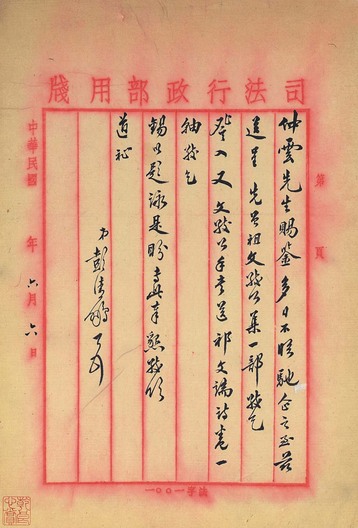 司法行政部用牋
第 頁
仲雲先生賜鑒多日不晤馳企之至茲
送呈先曾祖文敬公集一部敬乞
詧入又文敬公手書送祁文端詩卷一
軸敬乞
錫以題詠是盼耑奉懇敬頌
道祉
弟彭清鵬
中華民國 年六月六日
法字一〇〇一